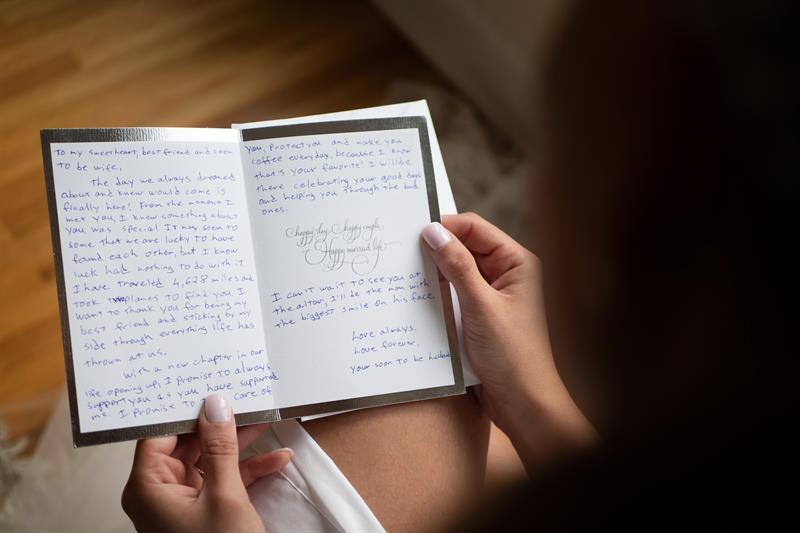 To my sweetheart, best friend and soon
to be wife,
The day we always dreamed
about and knew would come is
finally here! From the moment I
met you, I knew something about
you was special. It may seem to
some that we are lucky to have
found each other, but I know
luck had nothing to do with it.
I have traveled 4,628 miles and
took planes to find you. I
want to thank you for being my
best friend and sticking by my
side through everything life has
thrown at us.
With a new chapter in our
life opening up, I promise to always
support you as you have supported
me. I promise to care of
you, protect you and make you
coffee everyday, because I know
that's your favorite! I will be
there celebrating your good days
and helping you through the bad
ones.
happy day, Chappy couple
Happy married life
I can't wait to see you at
the altar, I'll be the man with
the biggest smile on his face.
Love always.
Love forever,
your soon to be